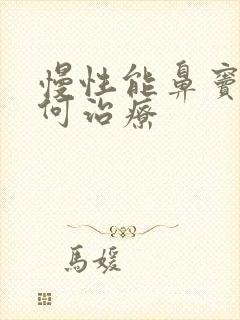 慢性能鼻竇
何治療
馬媛